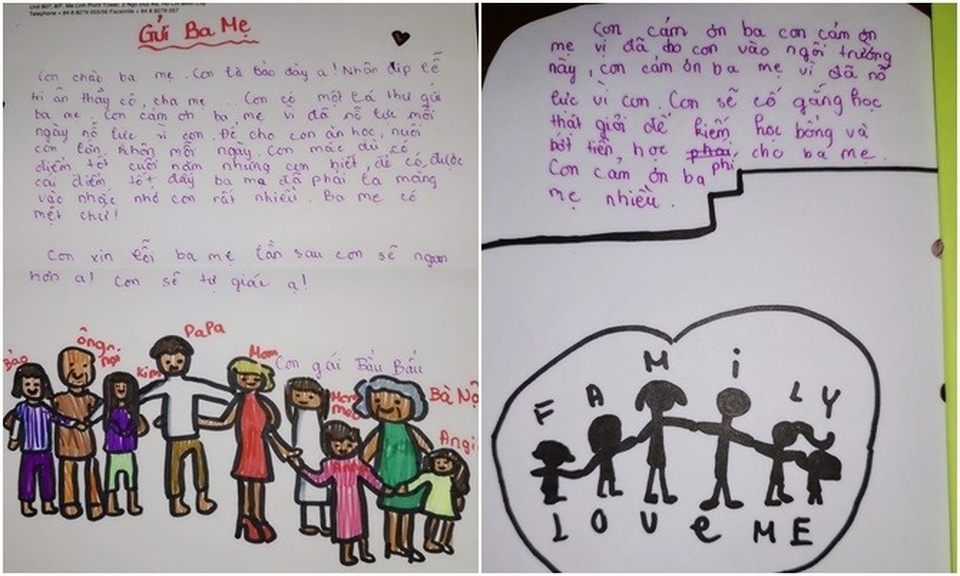 Unit 807, 8/F, Me Linh Point Tower, 2 Ngo Duc Ke, Ho Chi Minh City
Telephone + 84 8 8279 055/56 Facsimile + 84 8 8279 057
Gửi Ba Mẹ
Con chào ba mẹ. Con là Bảo đây ạ! Nhân dịp lễ
tri ân thầy cô, cha mẹ ... Con có một lá thư gửi
ba mẹ. Con cảm ơn ba mẹ vì đã nỗ lực mỗi
ngày nỗ lực vì con. Để cho con ăn học, nuôi
con lớn, khôn mỗi ngày. Con mặc dù có
điểm tốt cuối năm nhưng con biết, để có được
cái điểm tốt đấy ba mẹ đã phải la mắng
và nhắc nhở con rất nhiều. Ba mẹ có
mệt chứ!
Con xin lỗi ba mẹ lần sau con sẽ ngoan
hơn ạ! Con sẽ tự giác ạ!
Con gái Bầu Bầu
Bảo
ông nội
Kim
PaPa
Mom
Bà Nộ
Angi
Con cảm ơn ba con cảm ơn
mẹ vì đã cho con vào ngôi trường
này, con cảm ơn ba mẹ vì đã nỗ
lực vì con. Con sẽ cố gắng học
thật giỏi để kiếm học bổng và
bớt tiền học phải cho ba mẹ.
phí
Con cảm ơn ba
mẹ nhiều.
FAMiLY
LOVe ME